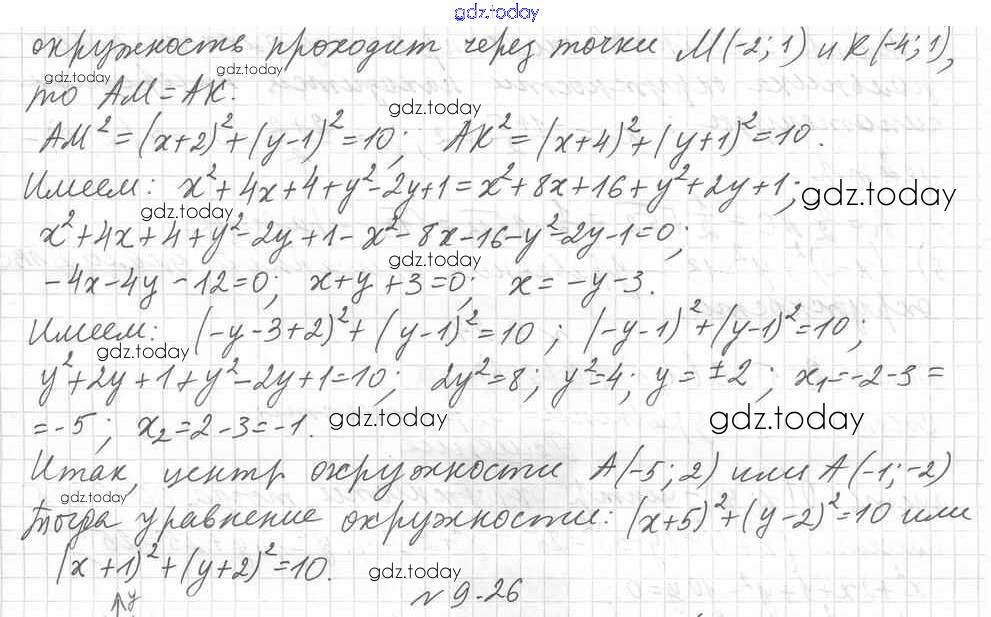 gdz.today
окружность проходит через точки M(-2; 1) и K(-4; 1),
gdz.today gdz.today
то AM = AK.
gdz.today
AM² = (x+2)² + (y-1)² = 10; AK² = (x+4)² + (y+1)² = 10.
Имеем: x² + 4x + 4 + y² - 2y + 1 = x² + 8x + 16 + y² + 2y + 1;
gdz.today gdz.today
x² + 4x + 4 + y² - 2y + 1 - x² - 8x - 16 - y² - 2y - 1 = 0;
gdz.today
-4x - 4y - 12 = 0; x + y + 3 = 0; x = -y - 3.
Имеем: (-y-3+2)² + (y-1)² = 10; (-y-1)² + (y-1)² = 10;
gdz.today
y² + 2y + 1 + y² - 2y + 1 = 10; 2y² = 8; y² = 4; y = ±2; x₁ = -2 - 3 =
= -5; x₂ = 2 - 3 = -1.
gdz.today gdz.today
Итак, центр окружности A(-5; 2) или A(-1; -2)
gdz.today
Тогда уравнение окружности: (x+5)² + (y-2)² = 10 или
(x+1)² + (y+2)² = 10.
gdz.today
№ 9-26
y